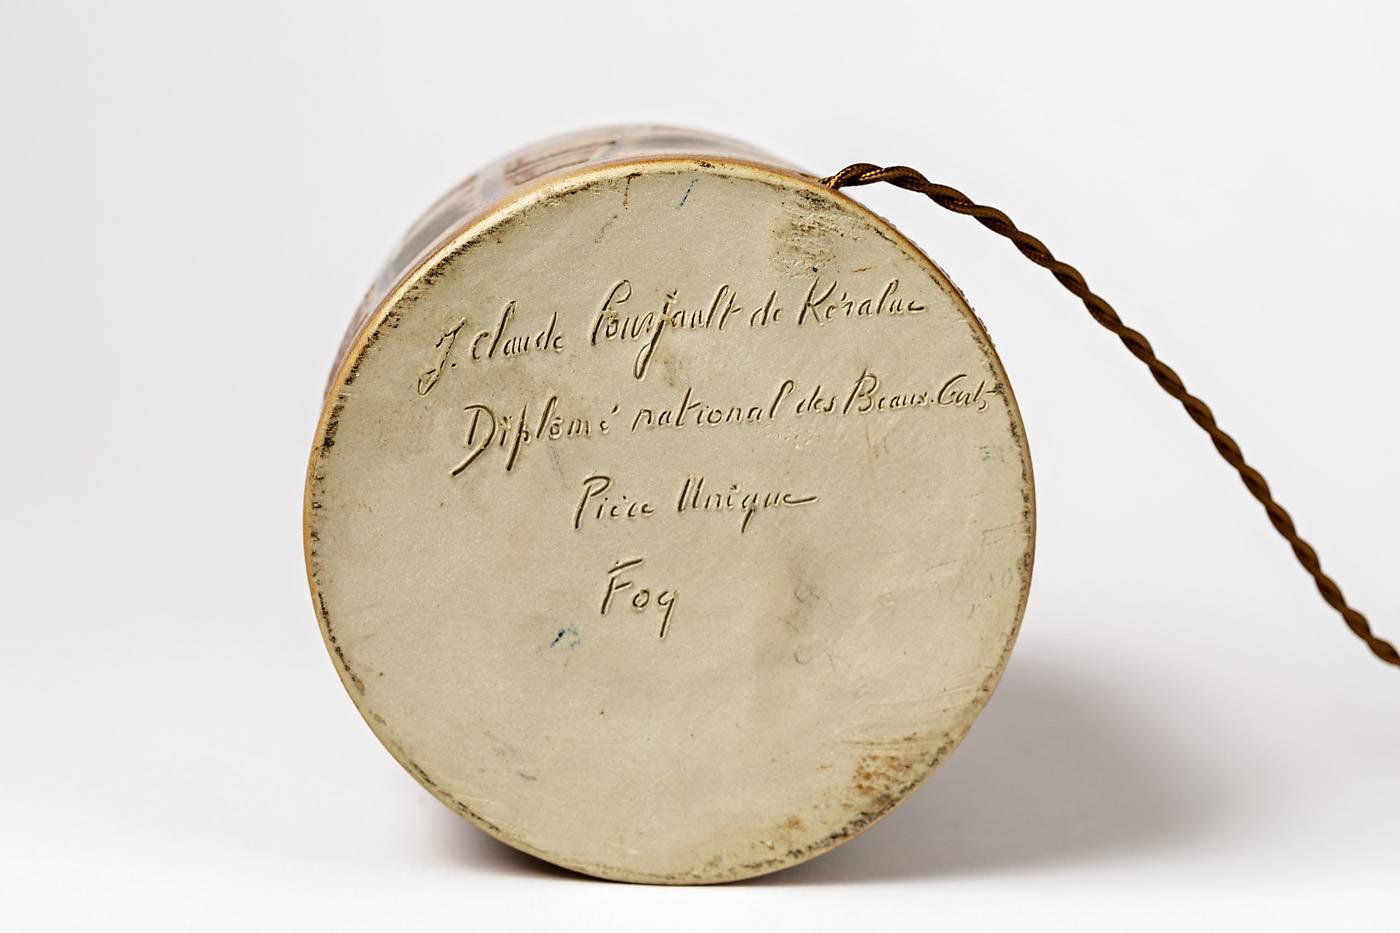 J. Claude Courjault de Kéraluc
Diplômé national des Beaux-Arts
Pièce Unique
Foq